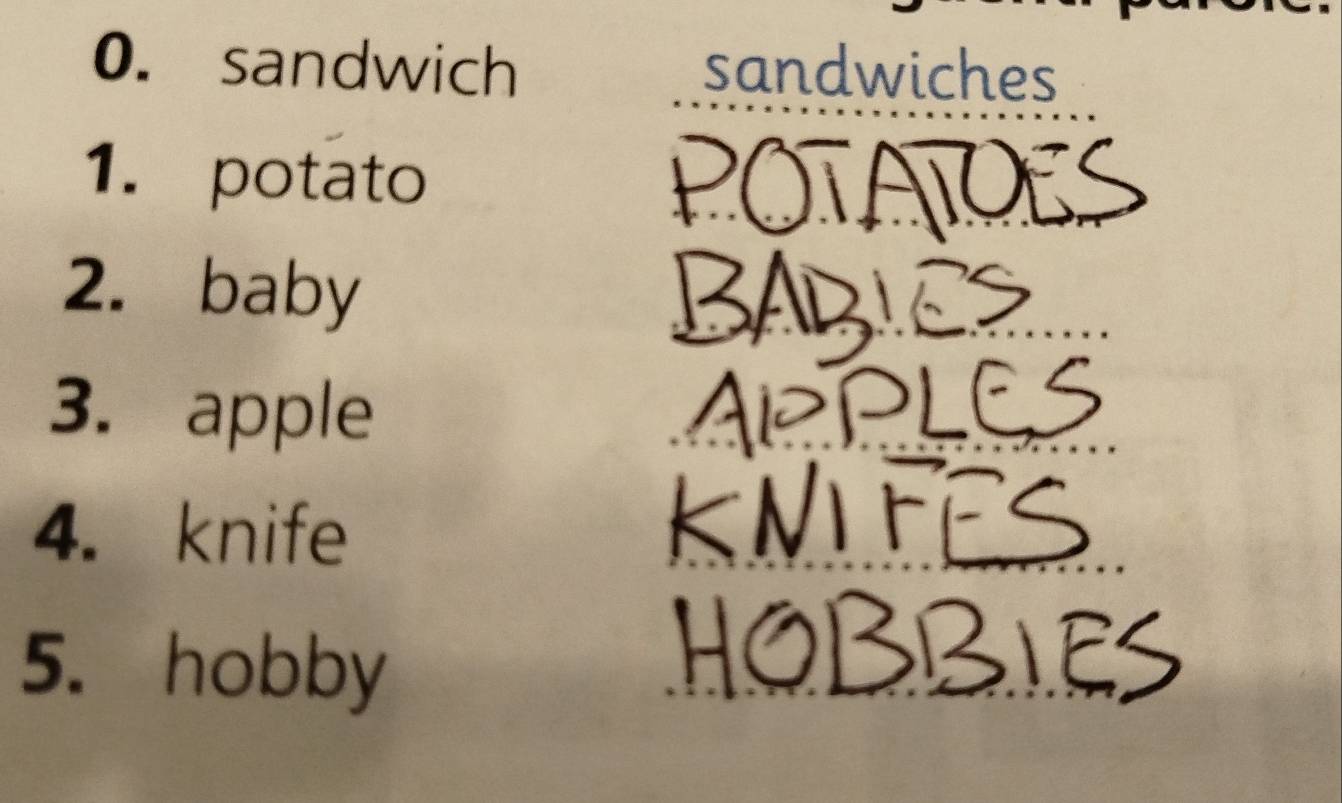 parole.
0. sandwich sandwiches
1. potato POTATOES
2. baby BABIES
3. apple APPLES
4. knife KNIFES
5. hobby HOBBIES